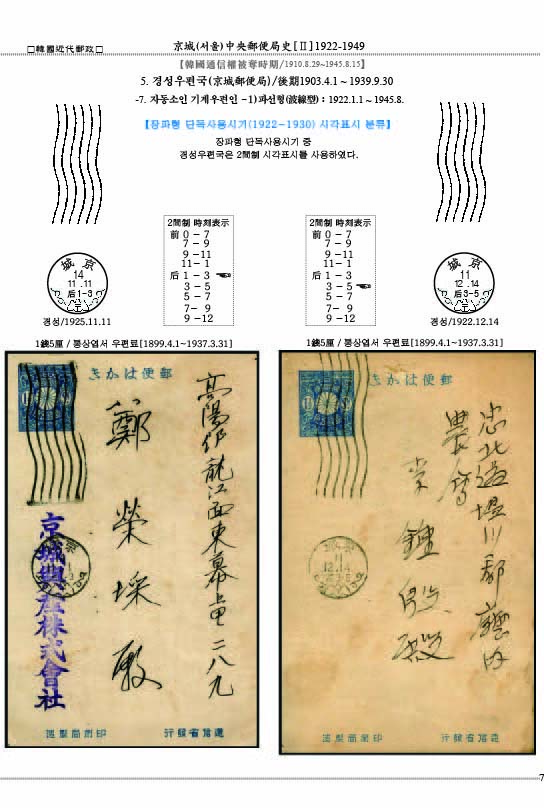 □韓國近代郵政□
京城(서울)中央郵便局史[Ⅱ]1922-1949
【韓國通信權被奪時期/1910.8.29~1945.8.15】
5. 경성우편국(京城郵便局)/後期1903.4.1 ~ 1939.9.30
-7. 자동소인 기계우편인 -1)파선형(波線型) : 1922.1.1 ~ 1945.8.
【장파형 단독사용시기(1922-1930) 시각표시 분류】
장파형 단독사용시기 중
경성우편국은 2間制 시각표시를 사용하였다.
2間制 時刻表示
前 0 - 7
7 - 9
9 -11
11- 1
后 1 - 3
3 - 5
5 - 7
7- 9
9 -12
2間制 時刻表示
前 0 - 7
7 - 9
9 -11
11- 1
后 1 - 3
3 - 5
5 - 7
7- 9
9 -12
城 京
14
11 .11
后1-3
경성/1925.11.11
城 京
11
12 .14
后3-5
경성/1922.12.14
1錢5厘 / 통상엽서 우편료[1899.4.1~1937.3.31]
1錢5厘 / 통상엽서 우편료[1899.4.1~1937.3.31]
きかは便郵
龍江面東幕上里二八九
鄭榮埰殿
京城興産株式會社
造製局刷印
行發省信遞
きかは便郵
11
12.14
忠北道堤川郡廳內
造製局刷印
行發省信遞
7